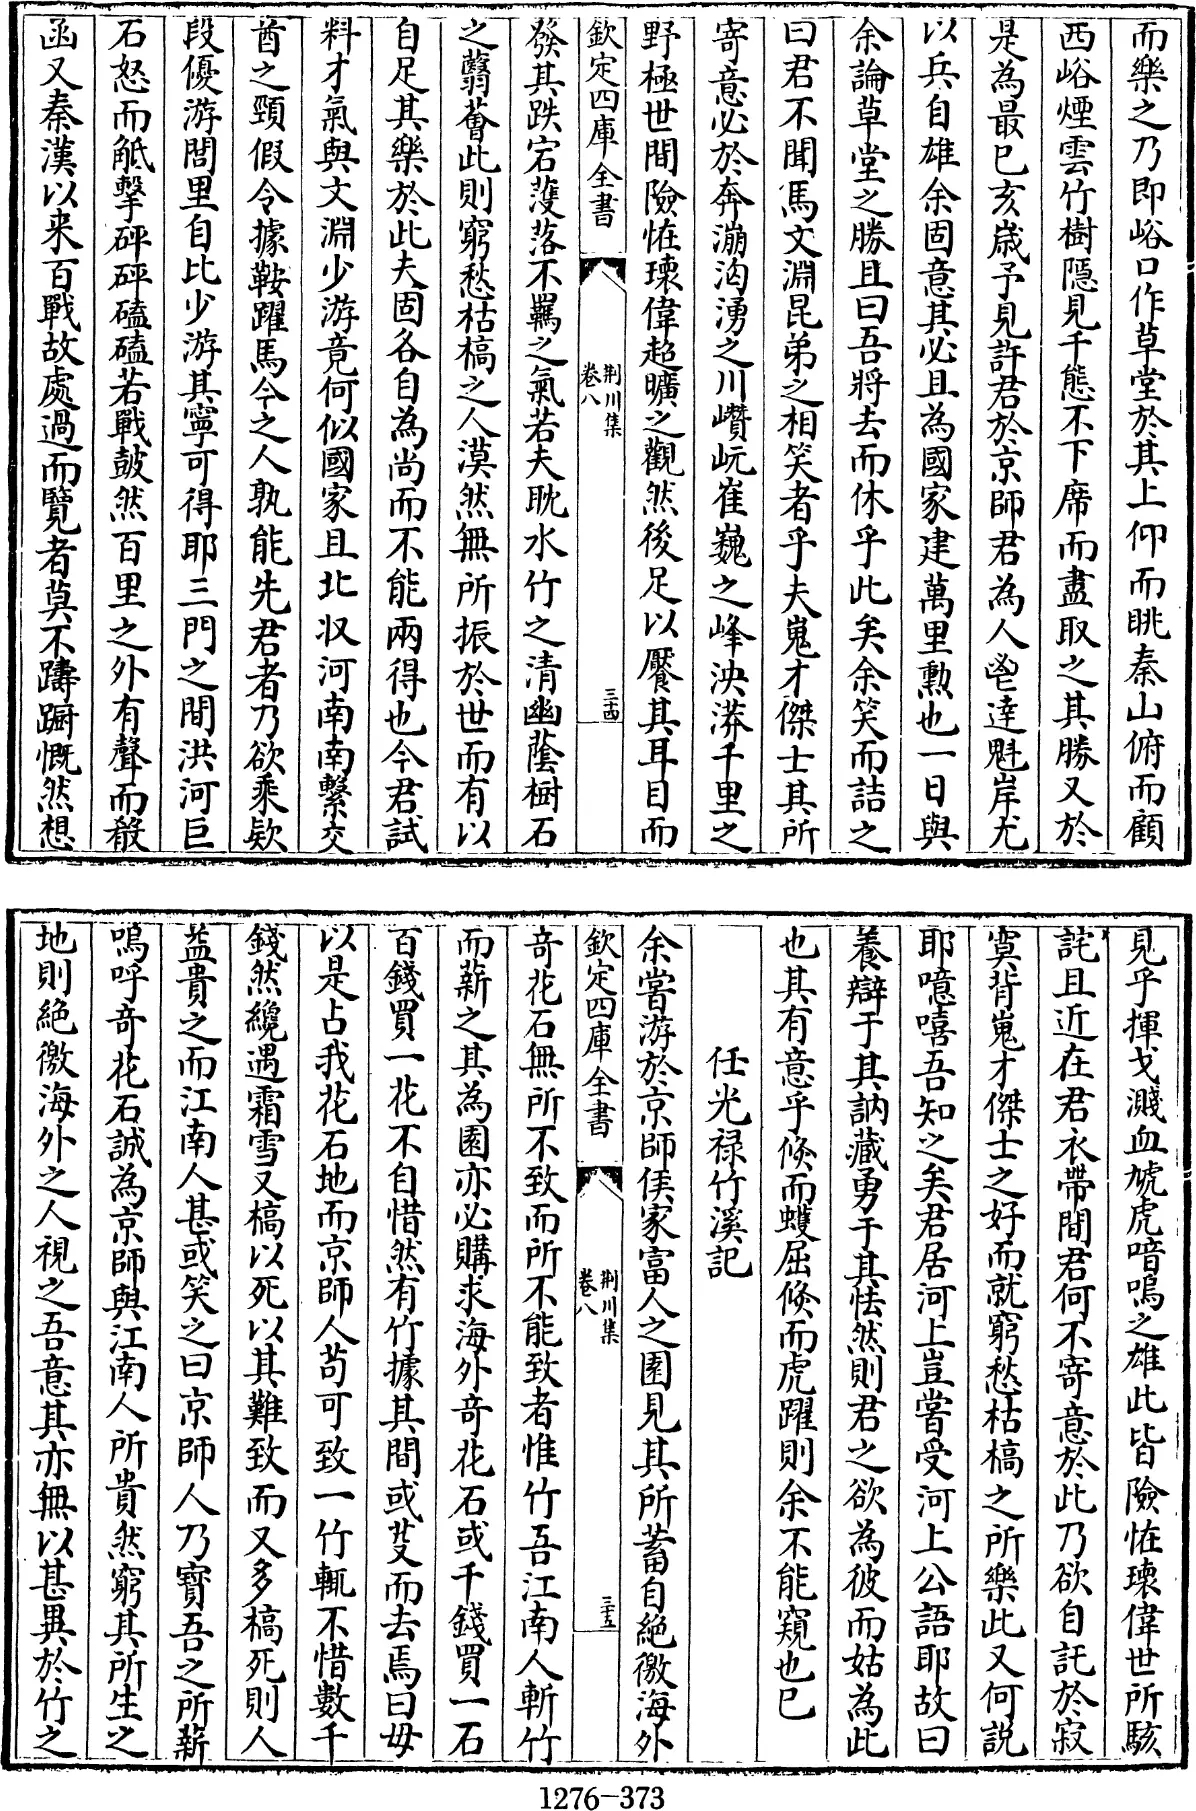 而樂之乃即峪口作草堂於其上仰而眺秦山俯而顧
西峪煙雲竹樹隱見千態不下席而盡取之其勝又於
是為最已亥嵗予見許君於京師君為人鬯達魁岸尤
以兵自雄余固意其必且為國家建萬里勲也一日與
余論草堂之勝且曰吾將去而休乎此矣余笑而詰之
曰君不聞馬文淵昆弟之相笑者乎夫嵬才傑士其所
寄意必於奔㶇洶湧之川巑岏崔巍之峰泱漭千里之
野極世間險怪瓌偉超曠之觀然後足以饜其耳目而
欽定四庫全書
荆川集
卷八
三四
發其跌宕蓬落不羈之氣若夫耽水竹之清幽蔭樹石
之蘙薈此則窮愁枯槁之人漠然無所振於世而有以
自足其樂於此夫固各自為尚而不能兩得也今君試
料才氣與文淵少游竟何似國家且北収河南南繫交
酋之頸假令據鞍躍馬今之人孰能先君者乃欲乘欵
段優游閭里自比少游其寧可得耶三門之間洪河巨
石怒而觝擊砰砰磕磕若戰鼓然百里之外有聲而殽
函又秦漢以来百戰故處過而覽者莫不躊蹰慨然想
見乎揮戈濺血虓虎喑嗚之雄此皆險怪瓌偉世所駭
詫且近在君衣帶間君何不寄意於此乃欲自託於寂
寞背嵬才傑士之好而就窮愁枯槁之所樂此又何説
耶噫嘻吾知之矣君居河上豈嘗受河上公語耶故曰
養辯于其訥藏勇于其怯然則君之欲為彼而姑為此
也其有意乎倐而蠖屈倐而虎躍則余不能窺也已
任光禄竹溪記
余嘗游於京師侯家富人之園見其所蓄自絶徼海外
欽定四庫全書
荆川集
卷八
三五
竒花石無所不致而所不能致者惟竹吾江南人斬竹
而薪之其為園亦必購求海外奇花石或千錢買一石
百錢買一花不自惜然有竹據其間或芟而去焉曰毋
以是占我花石地而京師人苟可致一竹輒不惜數千
錢然纔遇霜雪又槁以死以其難致而又多槁死則人
益貴之而江南人甚或笑之曰京師人乃寳吾之所薪
嗚呼竒花石誠為京師與江南人所貴然窮其所生之
地則絶徼海外之人視之吾意其亦無以甚異於竹之
1276-373